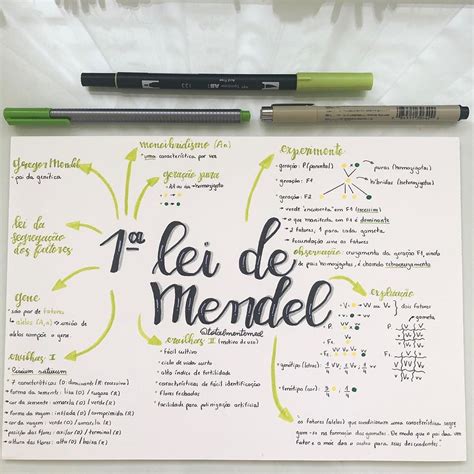 1ª lei de
Mendel
@totalmentemed
Gregor Mendel
• pai da genética
lei da
segregação
dos fatores
gene
• são por de fatores
• alelos (A,a) → união de
alelos compõe o gene.
ervilhas I
• Pisum sativum
• 7 características (D: dominante/R: recessivo)
• forma da semente: lisa (D) / rugosa (R)
• cor da semente: amarela (D) / verde (R)
• forma da vagem: inflada (D) / comprimida (R)
• cor da vagem: verde (D) / amarela (R)
• posição das flores: axilar (D) / terminal (R)
• altura das flores: alta (D) / baixa (R)
monoibridismo (Aa)
• uma característica por vez
geração pura
• AA ou aa → homozigoto
ervilhas II (motivo do uso)
• fácil cultivo
• ciclo de vida curto
• alto índice de fertilidade
• características de fácil identificação
• flores fechadas
• facilidade para polinização artificial
experimento
• geração: P (parental)
puras (homozigotas)
• geração: F1
híbridas (heterozigotas)
• geração: F2
• verde "encoberta" em F1 (recessiva)
• o que manifesta em F1 é dominante
• 2 fatores, 1 para cada gameta
• fecundação une os fatores
observação: cruzamento da geração F1, vinda
de pais homozigotos, é chamado retrocruzamento
explicação
dois fatores
gameta
• P:
• F1
• genótipo (letras):
• fenótipo (cor):
"os fatores (alelos) que condicionam uma característica segre
gam-se na formação dos gametas. De modo que o pai doa um
fator e a mãe doa o outro para seus descendentes"